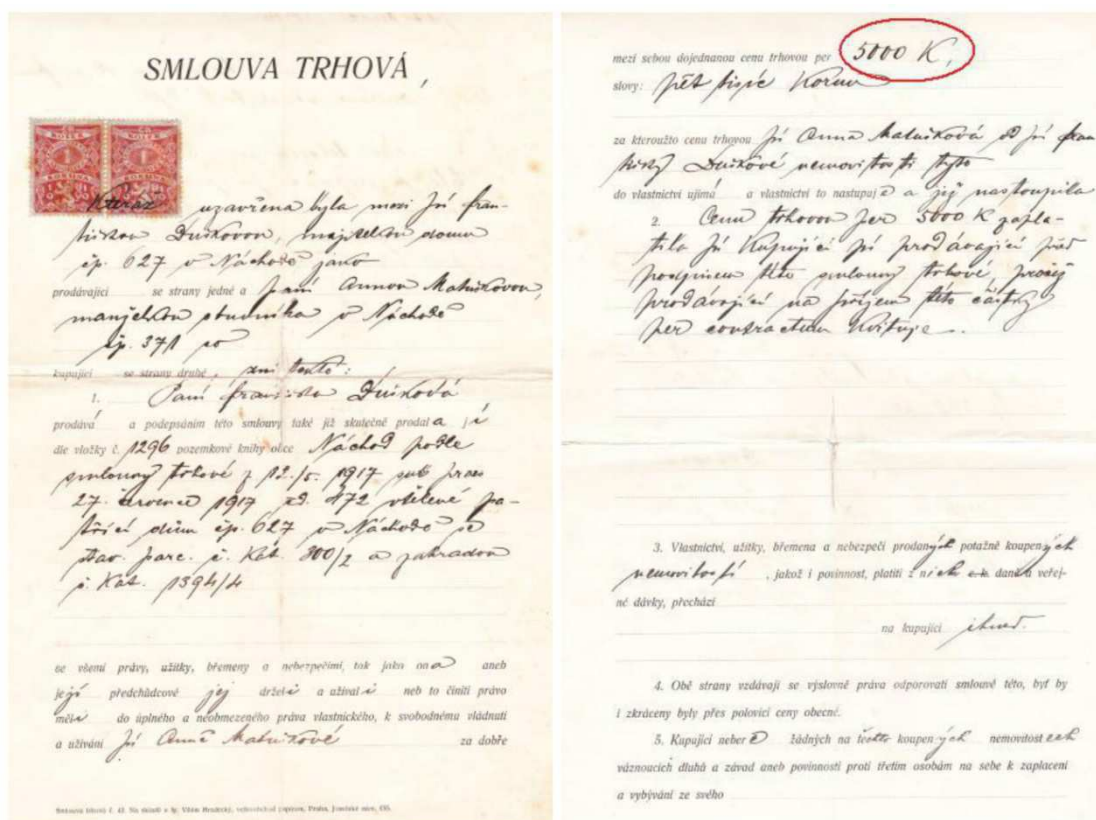 SMLOUVA TRHOVÁ,
KOLEK KOLEK
1 1
KORUNA KORUNA
Kteráž uzavřena byla mezi pí fran-
tiškou Duškovou, majitelkou domu
čp. 627 v Náchodě jako
prodávající se strany jedné a paní Annou Matuškovou,
manželkou v Náchodě
čp. 371 co
kupující se strany druhé,
1. Paní Františka Dušková
prodává a podepsáním této smlouvy také již skutečně prodala jí
dle vložky č. 1296 pozemkové knihy obce Náchod podle
smlouvy trhové z 12./5. 1917 sub praes
27. července 1917 čd. 472 vtělené pa-
třící dům čp. 627 v Náchodě se
stav. parc. č. kat. 300/2 a zahradou
č. kat. 1394/4
se všemi právy, užitky, břemeny a nebezpečími, tak jako ona aneb
její předchůdcové jej drželi a užívali neb to činiti právo
měli do úplného a neobmezeného práva vlastnického, k svobodnému vládnutí
a užívání pí Anně Matuškové za dobře
Smlouva trhová č. 42. Na skladě u fy. Vilém velkoobchod papírem, Praha, Jezdecká ulice,
mezi sebou dojednanou cenu trhovou per 5000 K,
slovy: pět tisíc Korun
za kteroužto cenu trhovou pí Anna Matušková od pí fran-
tišky Duškové nemovitosti tyto
do vlastnictví ujímá a vlastnictví to nastupuje a jej nastoupila
2. Cenu trhovou per 5000 K zapla-
tila pí kupující pí prodávající před
podpisem této smlouvy trhové, pročež
prodávající na příjem této částky
per contractum kvituje.
3. Vlastnictví, užitky, břemena a nebezpečí prodaných potažně koupených
nemovitostí, jakož i povinnost, platiti z nich c.k. daně a veřej-
né dávky, přechází
na kupující ihned.
4. Obě strany vzdávají se výslovně práva odporovati smlouvě této, byť by
i zkráceny byly přes polovici ceny obecné.
5. Kupující neberе žádných na těchto koupených nemovitostech
váznoucích dluhů a závad aneb povinností proti třetím osobám na sebe k zaplacení
a vybývání ze svého